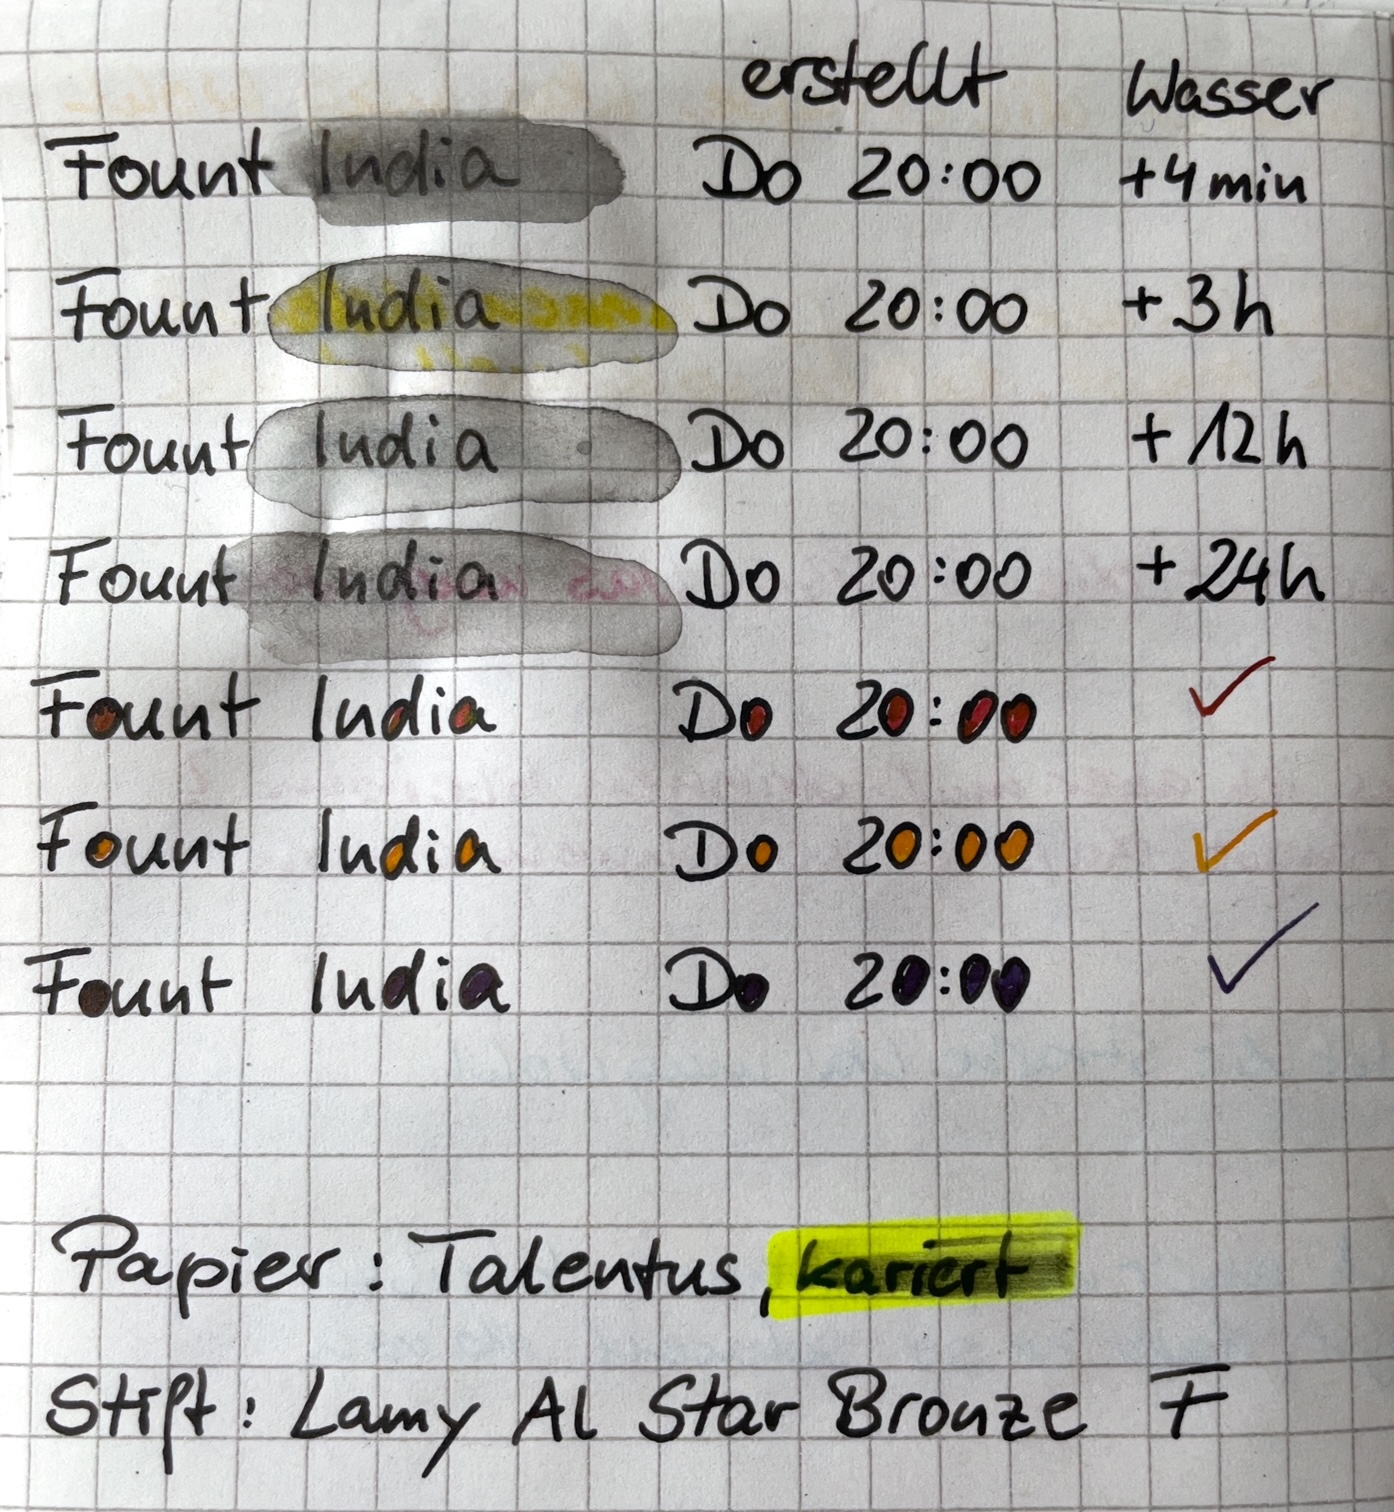 erstellt Wasser
Fount India Do 20:00 +4min
Fount India Do 20:00 +3h
Fount India Do 20:00 +12h
Fount India Do 20:00 +24h
Fount India Do 20:00 ✓
Fount India Do 20:00 ✓
Fount India Do 20:00 ✓
Papier: Talentus, kariert
Stift: Lamy Al Star Bronze F